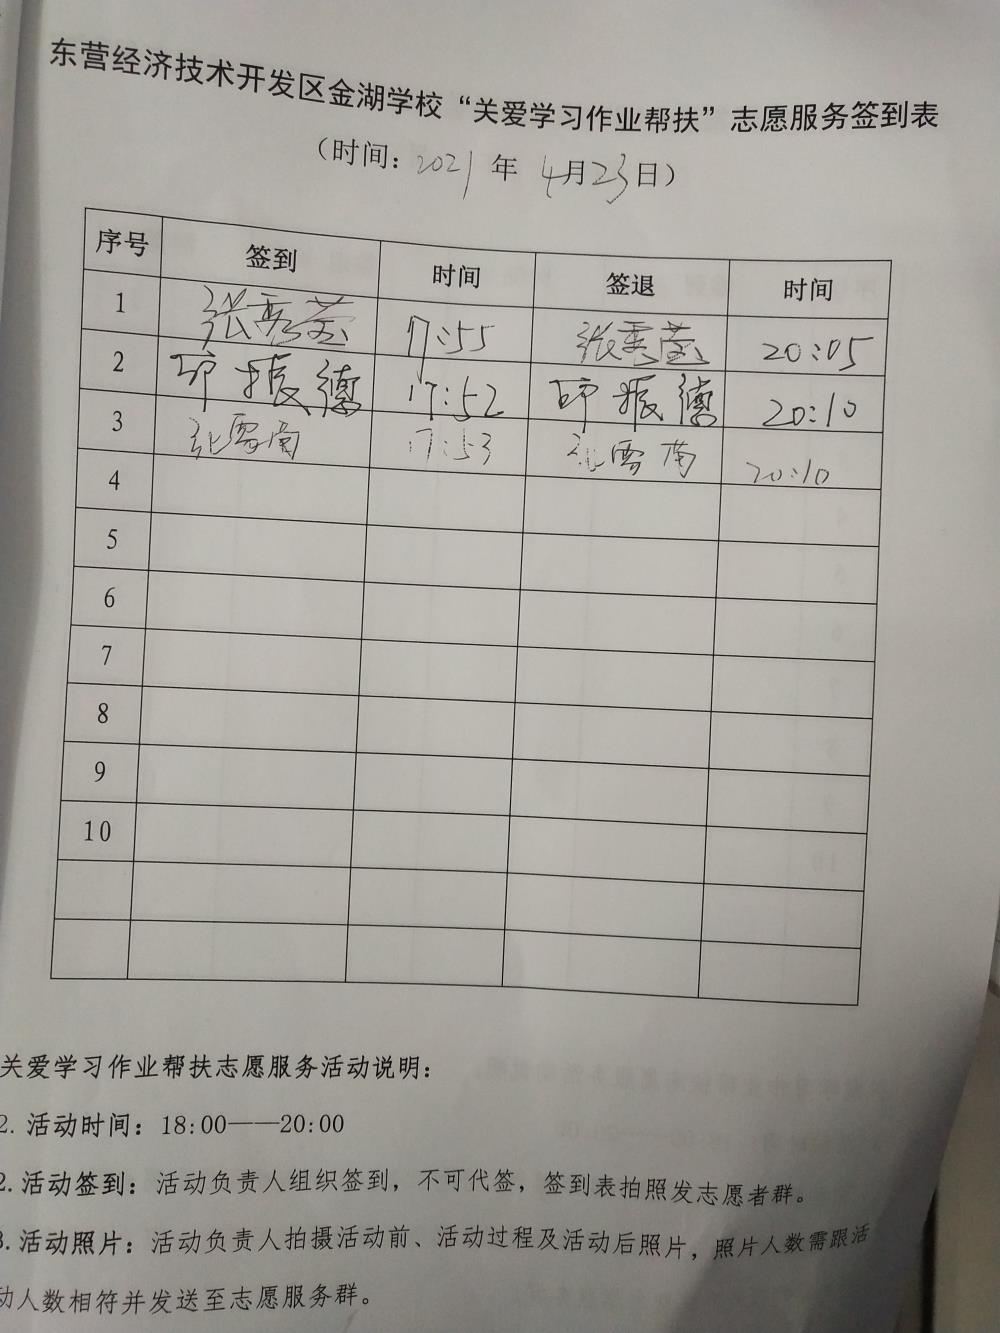 东营经济技术开发区金湖学校“关爱学习作业帮扶”志愿服务签到表
（时间：2021年 4月23日）
序号 签到 时间 签退 时间
1 张秀莹 17:55 张秀莹 20:05
2 振德 17:52 振德 20:10
3 张雪南 17:53 张雪南 20:10
4
5
6
7
8
9
10
关爱学习作业帮扶志愿服务活动说明：
2. 活动时间：18:00——20:00
2. 活动签到：活动负责人组织签到，不可代签，签到表拍照发志愿者群。
3. 活动照片：活动负责人拍摄活动前、活动过程及活动后照片，照片人数需跟活
动人数相符并发送至志愿服务群。